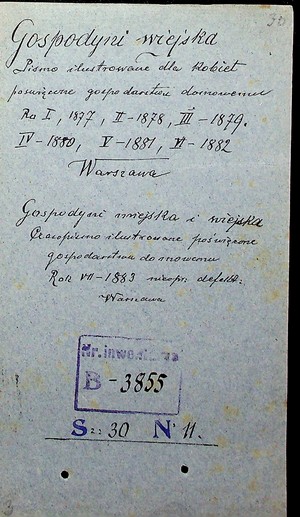 30
Gospodyni wiejska
Pismo ilustrowane dla kobiet
poświęcone gospodarstwu domowemu
Ro I, 1877, II-1878, III-1879.
IV-1880, V-1881, VI-1882
Warszawa
Gospodyni miejska i wiejska
Czasopismo ilustrowane poświęcone
gospodarstwu domowemu
Rok VII-1883 nieopr. defekt.
Warszawa
Nr. inwentarza
B-3855
S2: 30 N 11.